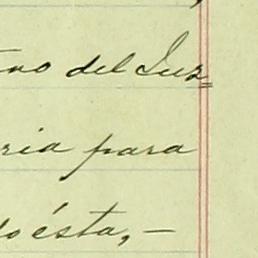 tro del Juz=
ria para
do ésta, —